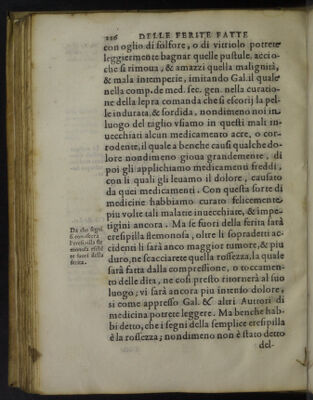 226 DELLE FERITE FATTE
con oglio di solfore, o di vitriolo potrete
leggiermente bagnar quelle pustule, accio-
che si rimoua, & amazzi quella malignità,
& mala intemperie, imitando Gal. il quale
nella comp. de med. sec. gen. nella curatio-
ne della lepra comanda che si escorij la pel-
le indurata, & sordida, nondimeno noi in
luogo del taglio vsiamo in questi mali in-
uecchiati alcun medicamento acre, o cor-
rodente, il quale a benche causi qualche do-
lore nondimeno gioua grandemente, di
poi gli applichiamo medicamenti freddi,
con li quali gli leuamo il dolore, causato
da quei medicamenti. Con questa sorte di
medicine habbiamo curato felicemente
piu volte tali malatie inuecchiate, & impe-
tigini ancora. Ma se fuori della ferita sarà
eresipilla flemonosa, oltre li sopradetti ac-
cidenti li sarà anco maggior tumore, & piu
duro, ne scacciarete quella rossezza, la quale
sarà fatta dalla compressione, o toccamen-
to delle dita, ne cosi presto ritornerà al suo
luogo; vi sarà ancora piu intenso dolore,
si come appresso Gal. & altri Auttori di
medicina potrete leggere. Ma benche hab-
bi detto, che i segni della semplice eresipilla
è la rossezza; nondimeno non è stato detto
del-
Da che segni
si conoscerà
l'eresipilla fle
monosa esse-
re fuori della
ferita.